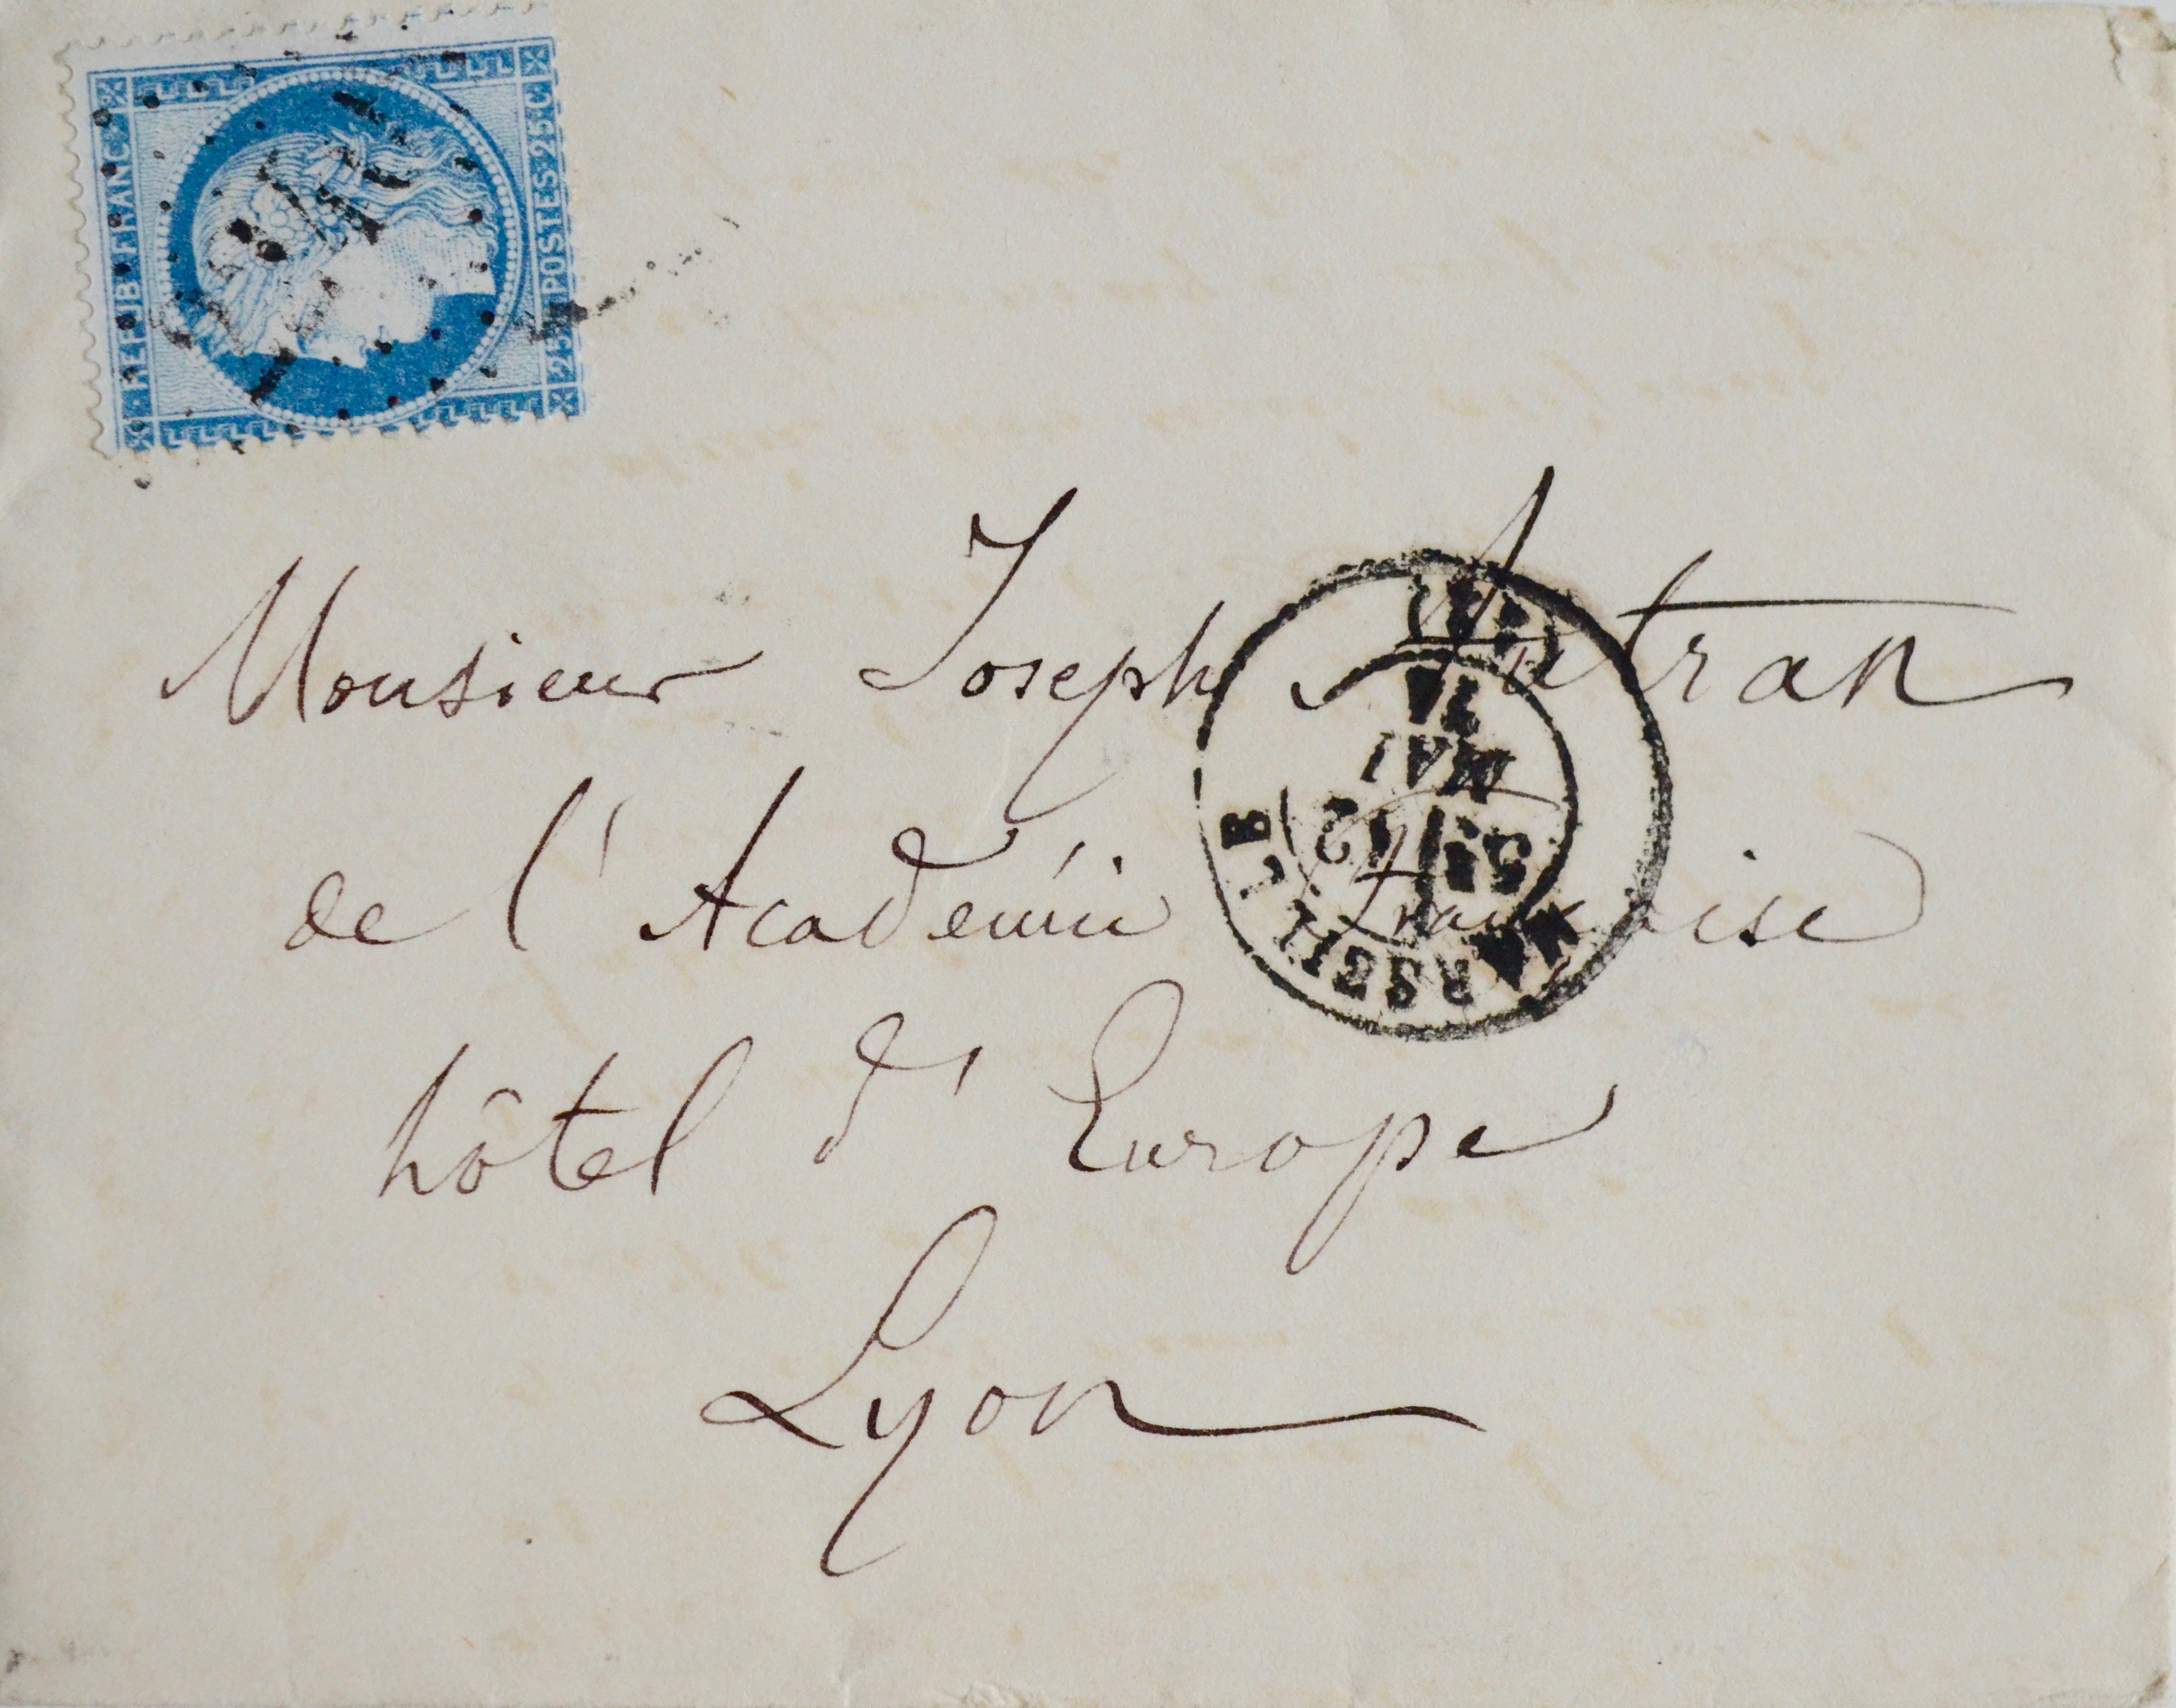 REPUB FRANC
25 POSTES 25C
Monsieur Joseph Autran
de l'Académie française
hôtel d'Europe
Lyon
MARSEILLE
MAI